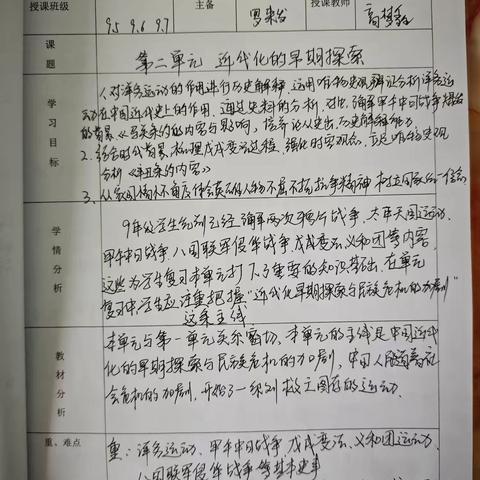 授课班级 95 9.6 9.7 主备 授课教师
课题 第二单元 近代化的早期探索
学习目标
1.对洋务运动的作用进行历史解释,运用唯物史观辩证分析洋务运
动在中国近代史上的作用。通过史料的分析、对比,理解甲午中日战争爆发
的背景、《马关条约》的内容与影响,培养论从史出、历史解释能力。
2.结合时代背景,梳理戊戌变法过程,强化时空观念,立足唯物史观
分析《辛丑条约》内容
3.从家国情怀角度体会英雄人物不屈不挠抗争精神
学情分析
9年级学生已经理解两次鸦片战争、太平天国运动、
甲午中日战争、八国联军侵华战争、戊戌变法、义和团等内容,
这些为学生复习本单元打下了重要的知识基础,在单元
复习中学生应注重把握“近代化早期探索与民族危机的加剧”
这条主线
教材分析
本单元与第一单元关系密切,本单元的主线是中国近代
化的早期探索与民族危机的加剧,中国人随着社
会危机的加剧,开始了一系列救亡图存的运动.
重、难点
重:洋务运动、甲午中日战争、戊戌变法、义和团运动、
八国联军侵华战争等基本史事